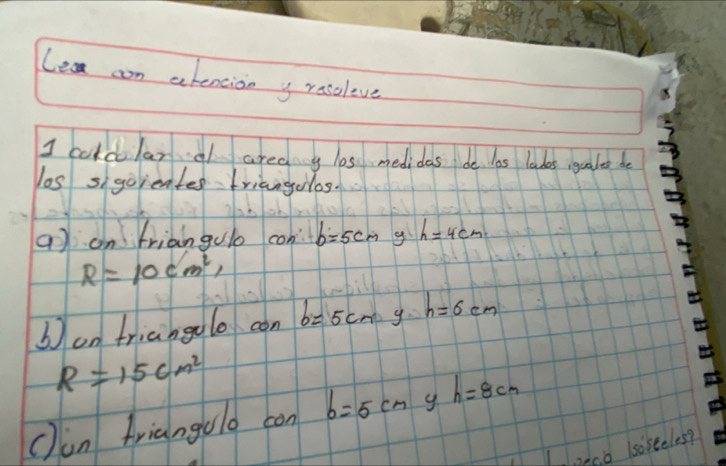 Lea con atencion y resoleve
1 calcular el area y los medidas de los lados iguales de
los siguientes triangulos.
a) un triangulo con b=5cm y h=4cm
R=10cm²,
b) un triangulo con b=5cm y h=6cm
R=15cm²
c) un triangulo con b=5cm y h=8cm
isosceles?